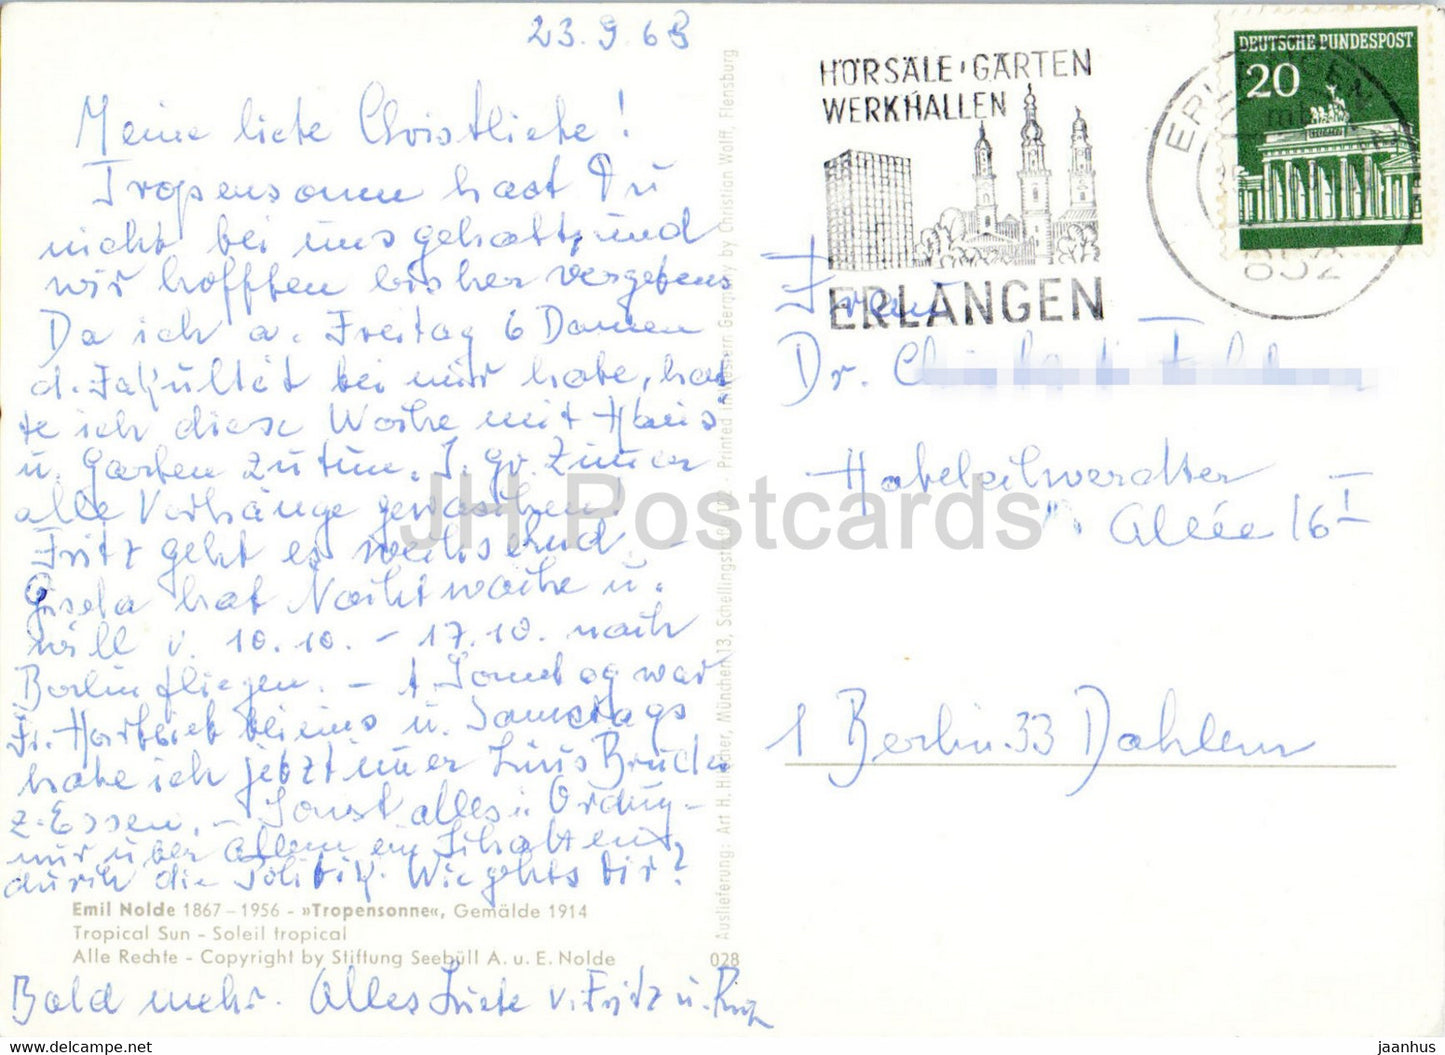 23.9.68
Meine liebe Christliebe!
Tropensonne hast Du
nicht bei uns gehabt, und
wir hofften bisher vergebens
Da ich a. Freitag 6 Damen
d. Fakultät bei mir habe, hat
te ich diese Woche mit Haus
u. Garten zu tun. I. Gr. Zimmer
alle Vorhänge gewaschen!
Fritz geht es wechselnd. -
Gisela hat Nachtwache u.
will v. 10.10. - 17.10. nach
Berlin fliegen. - A. Sonntag war
Fr. bei uns u. Samstags
habe ich jetzt immer Bruder
z. Essen. - Sonst alles i. Ordng -
nur über Allem ein Schatten
durch die Politik. Wie gehts Dir?
Emil Nolde 1867-1956 - »Tropensonne«, Gemälde 1914
Tropical Sun - Soleil tropical
Alle Rechte - Copyright by Stiftung Seebüll A. u. E. Nolde
028
Bald mehr. Alles Liebe v. Fritz u.
Auslieferung: Art H. Hilscher, München 13, Printed in Western Germany by Christian Wolff, Flensburg
HÖRSÄLE, GÄRTEN
WERKHALLEN
ERLANGEN
ERLANGEN
852
DEUTSCHE BUNDESPOST
20
Frau
Dr.
Habelschwerdter -
Allée 16 I
1 Berlin 33 Dahlem
JH Postcards
www.delcampe.net
jaanhus